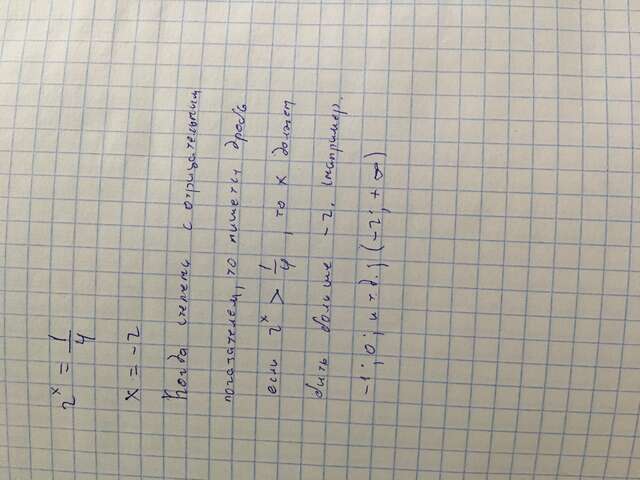 2^x = 1/4
x = -2
Когда степень с отрицательним
показателем, то пишется дробь
если 2^x > 1/4, то x должен
бить больше -2. (например.
-1; 0; и т.д.; (-2; +∞)